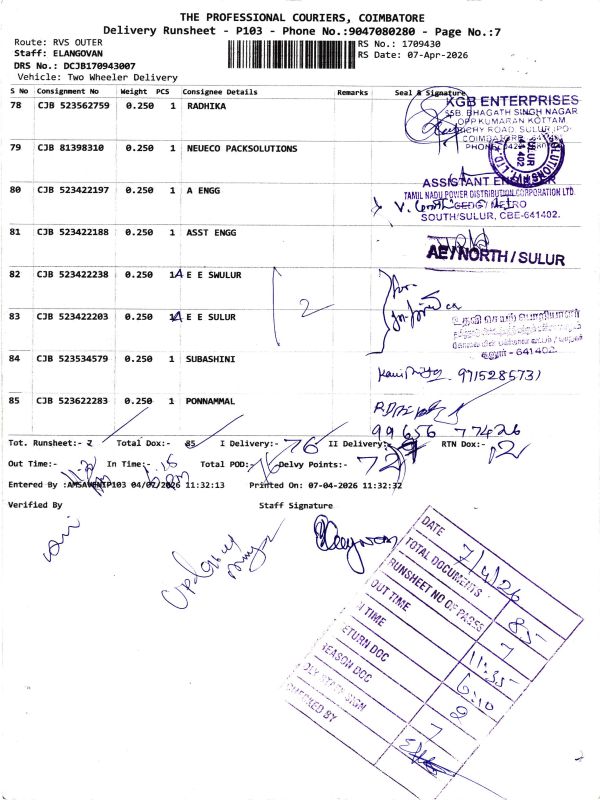 THE PROFESSIONAL COURIERS, COIMBATORE
Delivery Runsheet - P103 - Phone No.:9047080280 - Page No.:7
Route: RVS OUTER
RS No.: 1709430
Staff: ELANGOVAN
RS Date: 07-Apr-2026
DRS No.: DCJB170943007
Vehicle: Two Wheeler Delivery
S No Consignment No Weight PCS Consignee Details Remarks Seal & Signature
78 CJB 523562759 0.250 1 RADHIKA
KGB ENTERPRISES
BHAGATH SINGH NAGAR
OPP KUMARAN KOTTAM
ROAD, SULUR (PO)
79 CJB 81398310 0.250 1 NEUECO PACKSOLUTIONS
80 CJB 523422197 0.250 1 A ENGG
ASSISTANT ENGINEER
TAMIL NADU POWER DISTRIBUTION CORPORATION LTD.
CEDC / METRO
SOUTH/SULUR, CBE-641402.
81 CJB 523422188 0.250 1 ASST ENGG
AE/NORTH / SULUR
82 CJB 523422238 0.250 1 E E SWULUR
2
83 CJB 523422203 0.250 1 E E SULUR
உதவி செயற் பொறியாளர்
சூலூர் - 641402.
84 CJB 523534579 0.250 1 SUBASHINI
9715285731
85 CJB 523622283 0.250 1 PONNAMMAL
99656 77426
Tot. Runsheet:- 7 Total Dox:- 85 I Delivery:- 76 II Delivery:- RTN Dox:- 2
Out Time:- In Time:- 6:15 Total POD:- Delvy Points:- 72
Entered By :AMSAVENIP103 04/07/2026 11:32:13 Printed On: 07-04-2026 11:32:32
Verified By Staff Signature
DATE 7/4/26
TOTAL DOCUMENTS 85
RUNSHEET NO OF PAGES 7
OUT TIME 11:35
IN TIME 6:10
RETURN DOC 2
REASON DOC
DLY STAFF SIGN 7
CHECKED BY